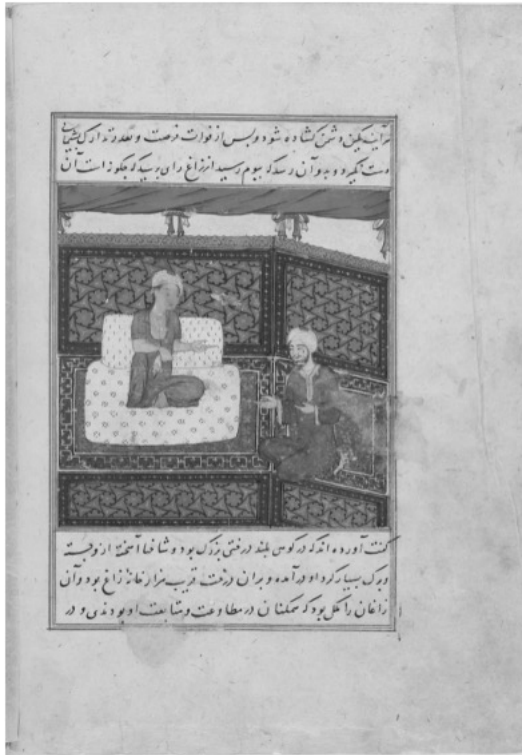 هرآینه کمین دشمن کشاده شود و پس از فوات فرصت و تعذر تدارک پشیمانی
دست نکیرد و بدو آن رسد که ببوم رسید از زاغ رای پرسید که چکونه است آن
کفت آورده اند که در کوهی بلند درختی بزرک بود و شاخها آهخته ازو جسته
و برک بسیار کرد او در آمده و بران درخت قریب هزار خانهٔ زاغ بود و آن
زاغان را ملکی بود که همکنان در مطاوعت و متابعت او بودندی و در